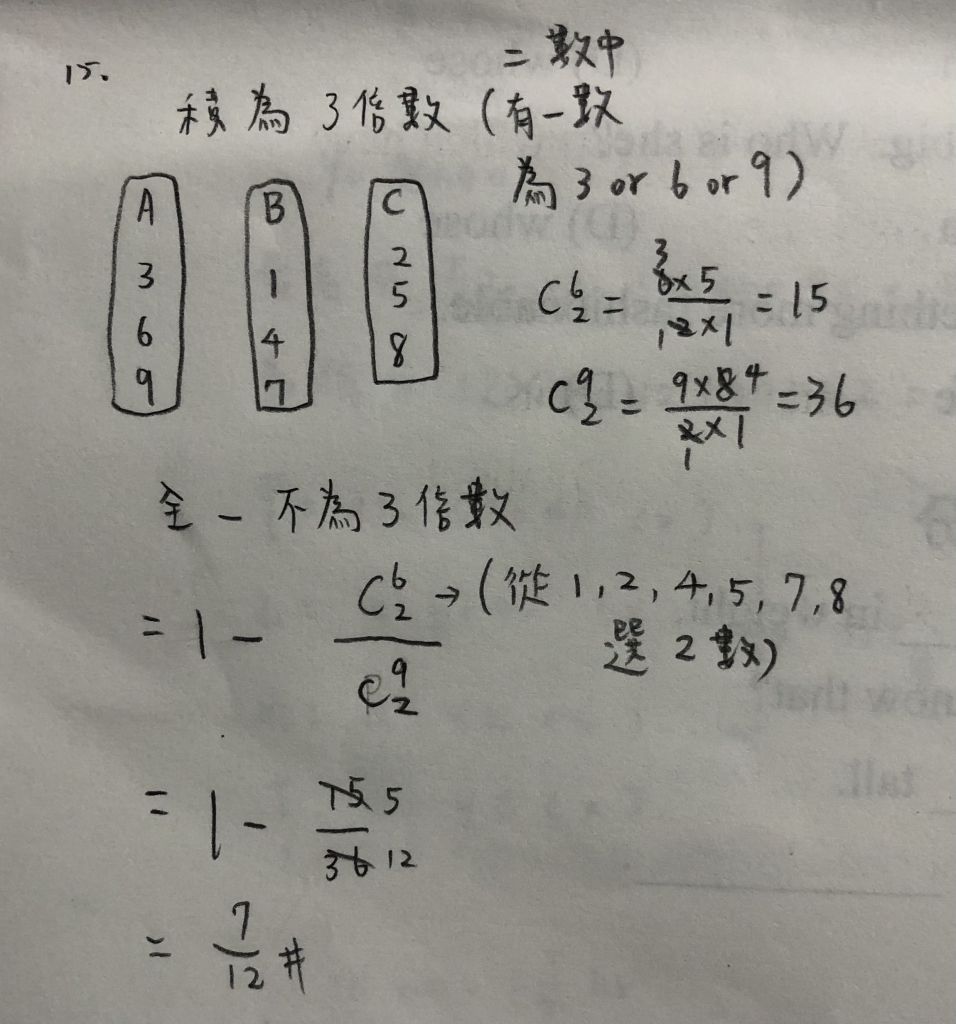 15.
二數中
積為3倍數(有一數
為3 or 6 or 9)
A B C
3 1 2
6 4 5
9 7 8
C⁶₂ = 6×5/2×1 = 15
C⁹₂ = 9×8/2×1 = 36
全 - 不為3倍數
= 1 - C⁶₂/C⁹₂ → (從1,2,4,5,7,8
選2數)
= 1 - 15/36 5/12
= 7/12 #